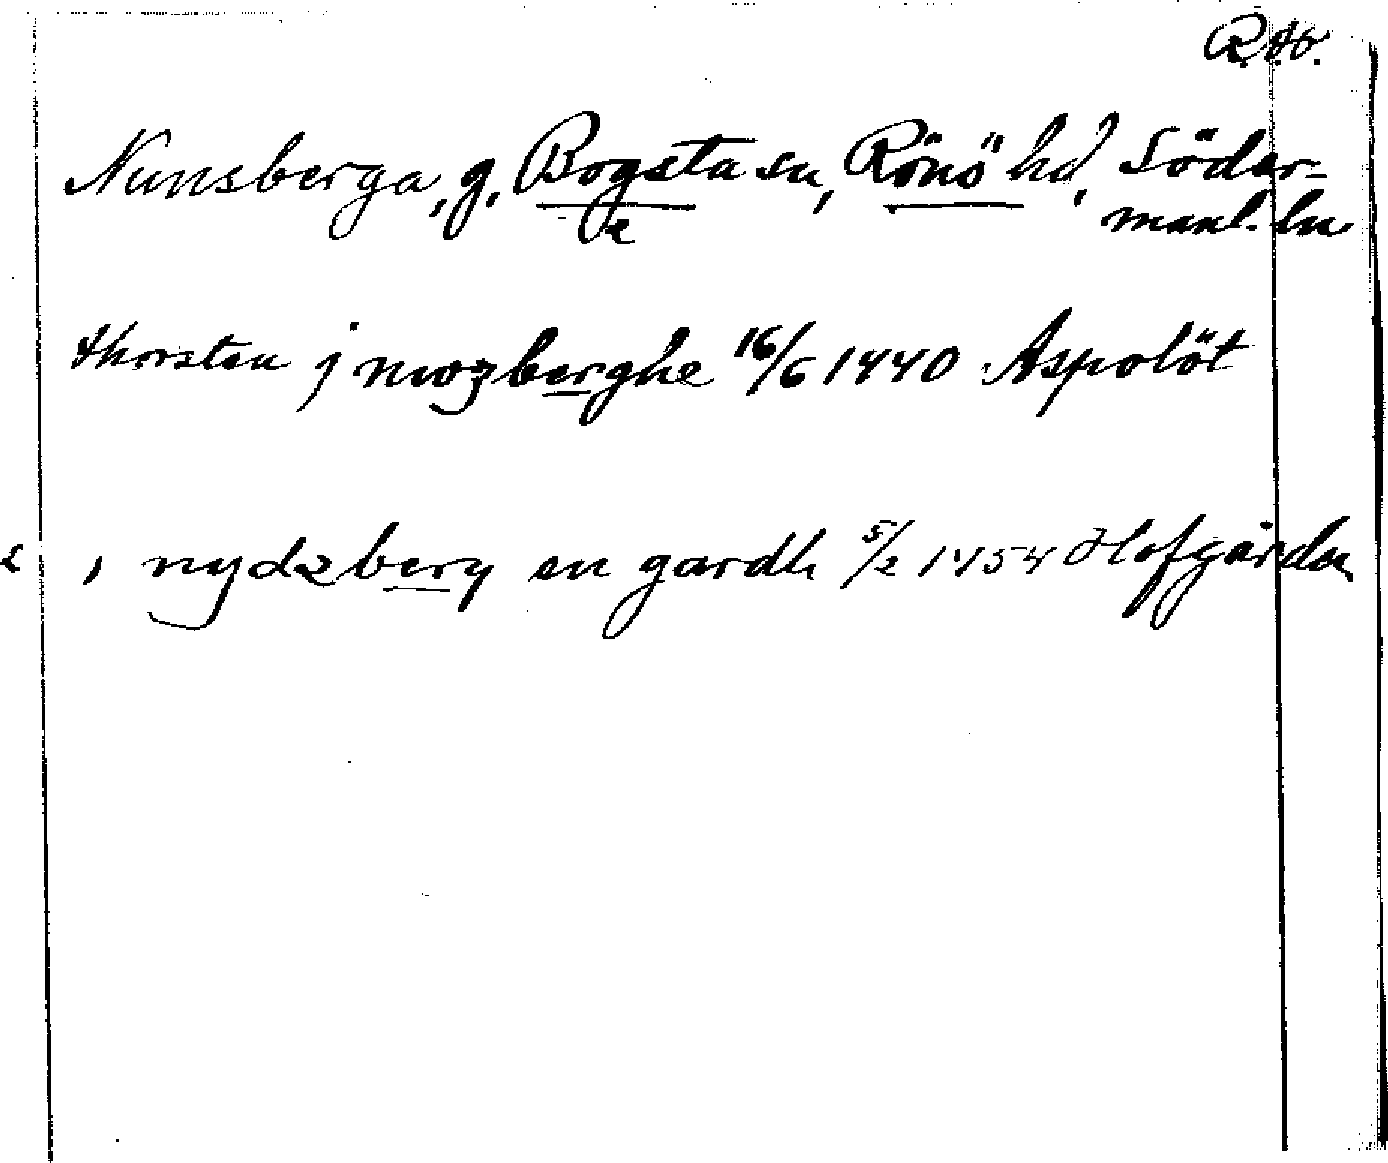 R.Ab.
Nunsberga, g, Bogsta sn, Rönö hd, Söder-
2
manl. ln
thorsten j nwgzberghe 16/6 1440 Aspolöt
2 , nydzberg en gardh 5/2 1454 Olofgården